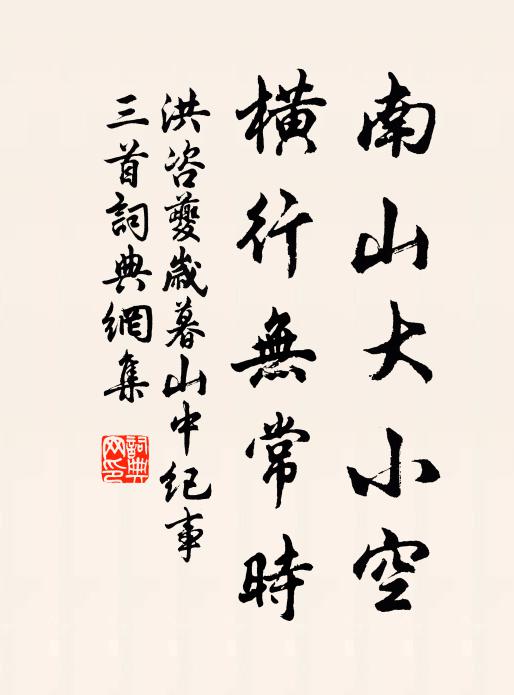 南山大小空
橫行無常時
洪咨夔歲暮山中紀事
三首詞典網集
詞典網印